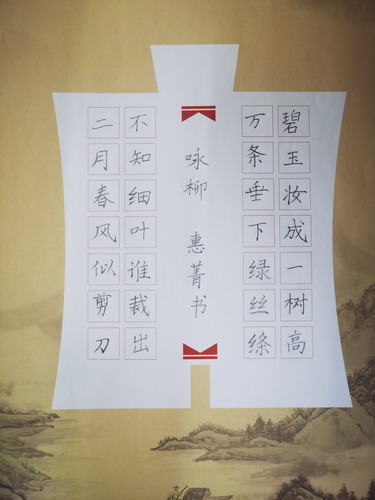 碧玉妆成一树高
万条垂下绿丝绦
咏柳 惠菁书
不知细叶谁裁出
二月春风似剪刀